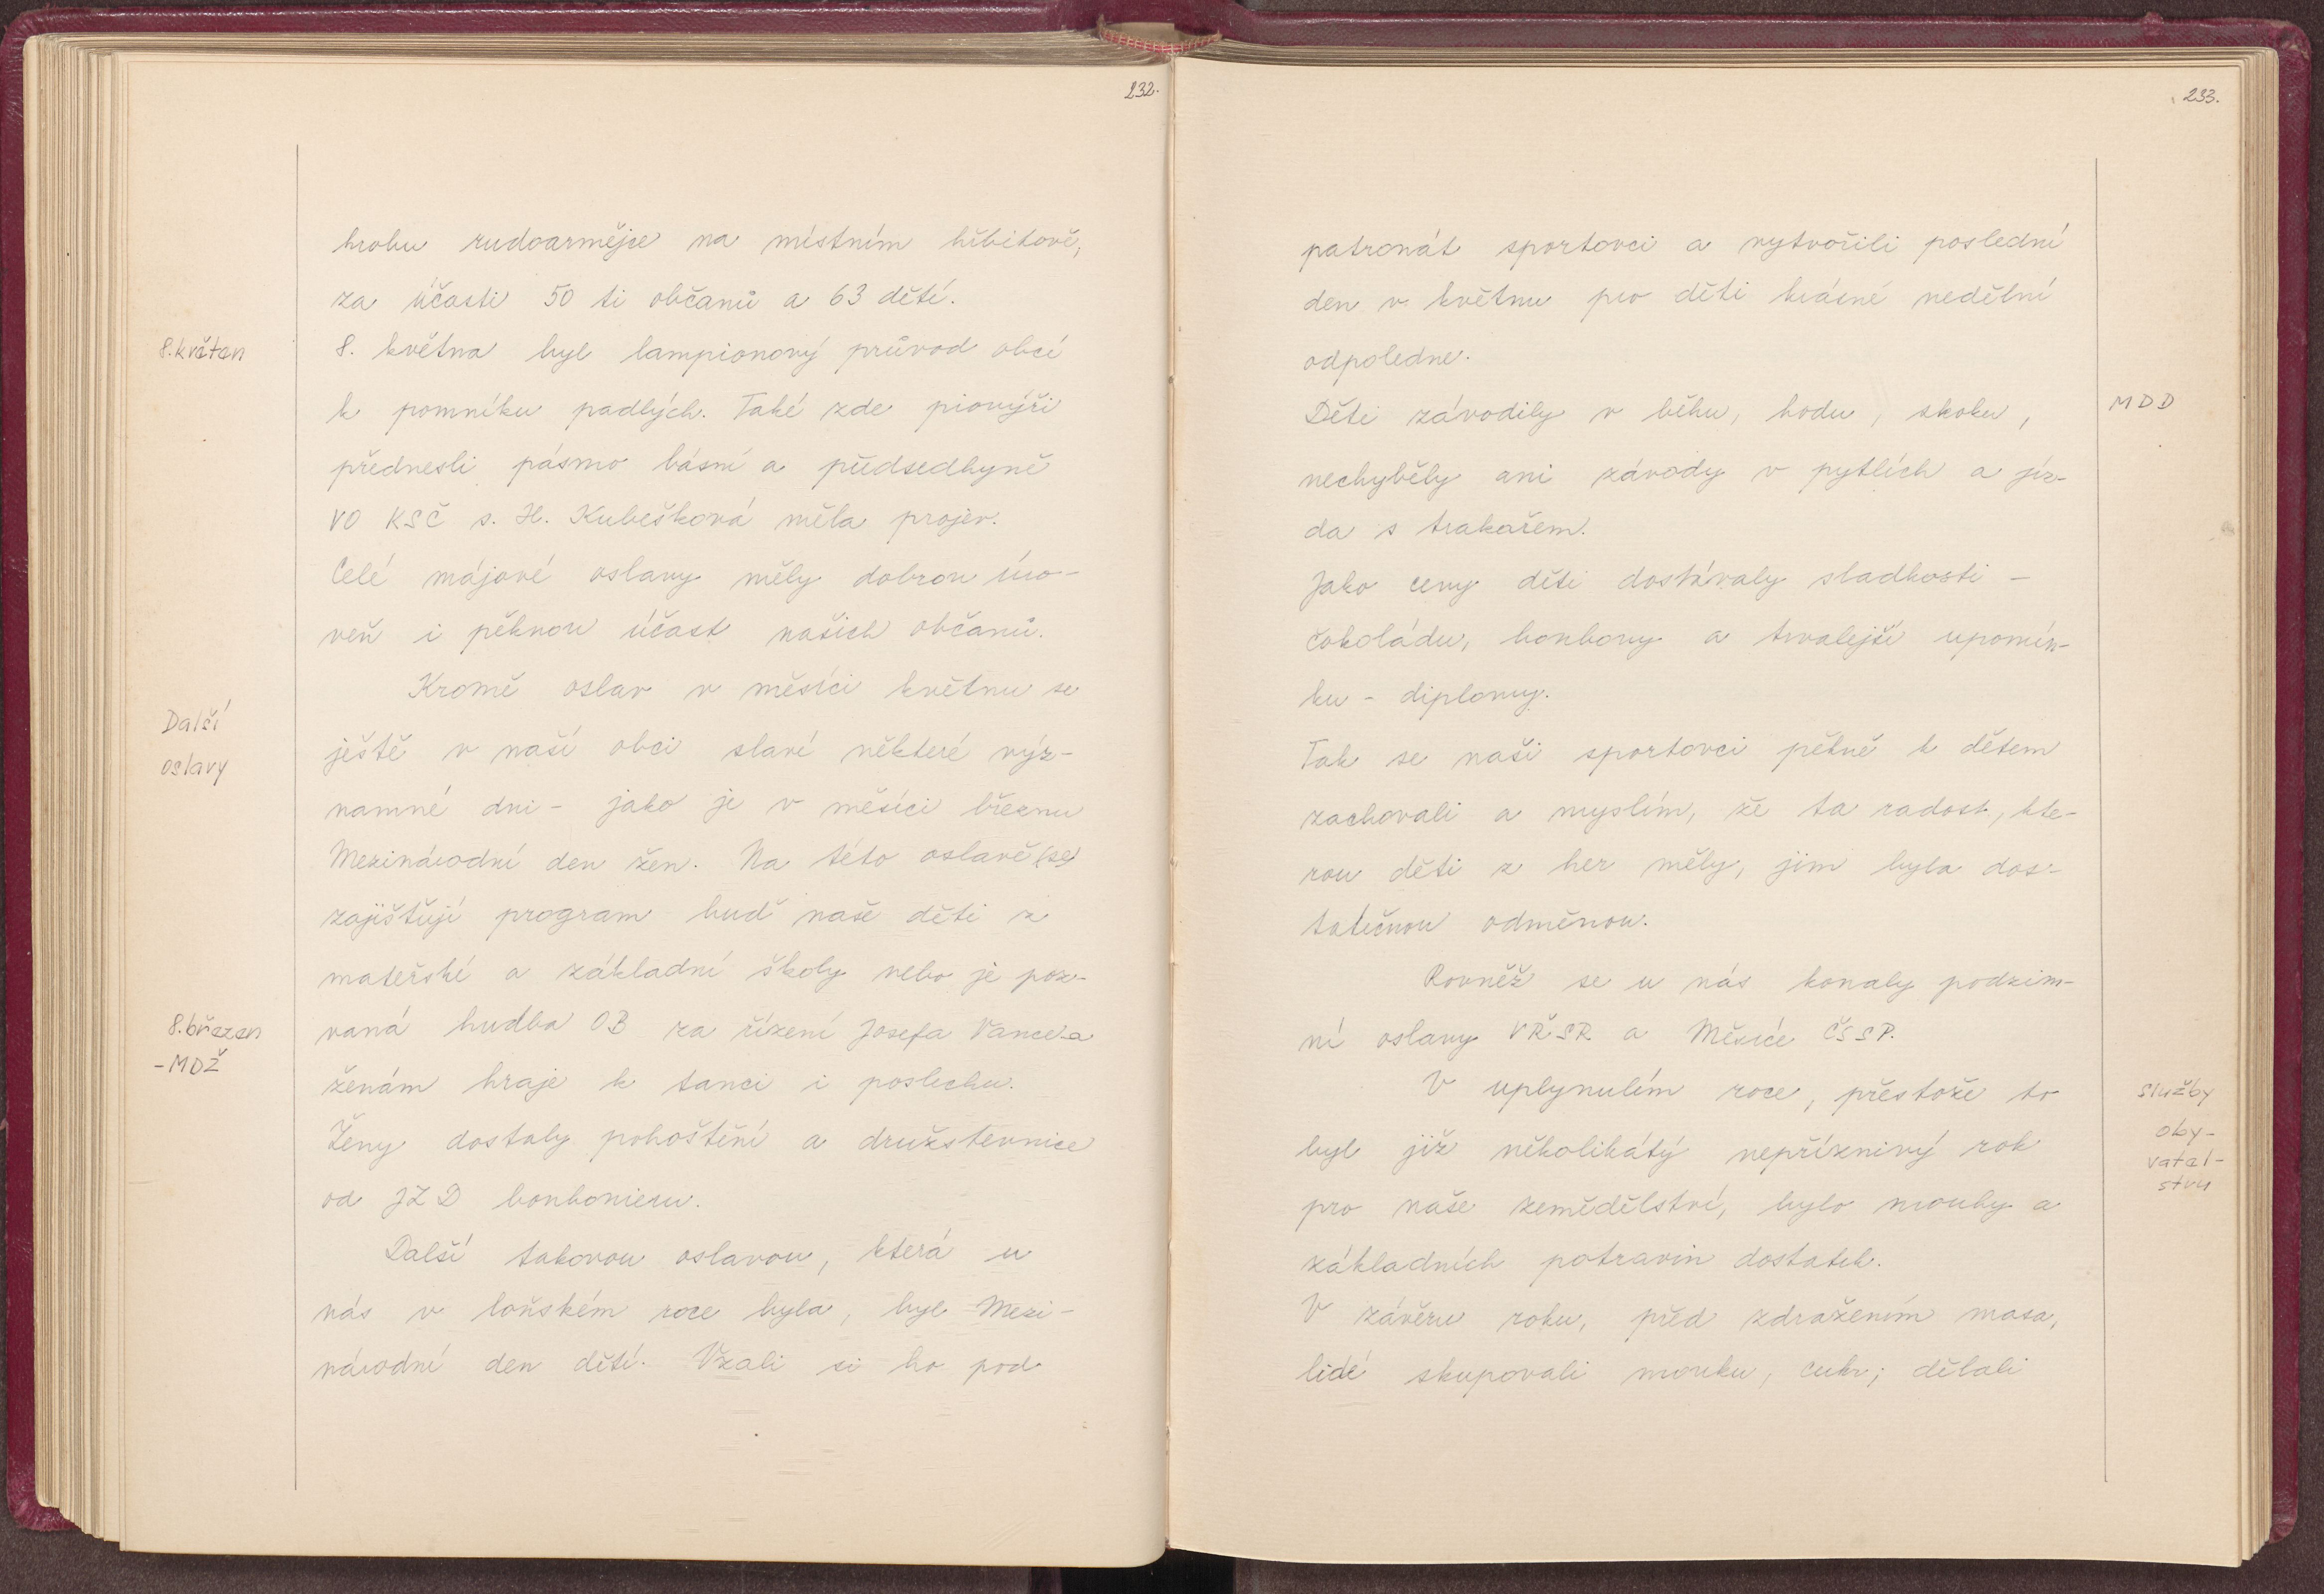 232.
hrobu rudoarmějce na místním hřbitově,
za účasti 50 ti občanů a 63 dětí.
8. květen
8. května byl lampionový průvod obcí
k pomníku padlých. Také zde pionýři
přednesli pásmo básní a předsedkyně
VO KSČ s. H. Kubešková měla projev.
Celé májové oslavy měly dobrou úro-
veň i pěknou účast našich občanů.
Kromě oslav v měsíci květnu se
Další
oslavy
ještě v naší obci slaví některé výz-
namné dni - jako je v měsíci březnu
Mezinárodní den žen. Na této oslavě (se)
zajišťují program buď naše děti z
mateřské a základní školy nebo je poz-
8. březen
- MDŽ
vaná hudba OB za řízení Josefa Vancela
ženám hraje k tanci i poslechu.
Ženy dostaly pohoštění a družstevnice
od JZD bonbonieru.
Další takovou oslavou, která u
nás v loňském roce byla, byl Mezi-
národní den dětí. Vzali si ho pod
233.
patronát sportovci a vytvořili poslední
den v květnu pro děti krásné nedělní
odpoledne.
MDD
Děti závodily v běhu, hodu, skoku,
nechyběly ani závody v pytlích a jíz-
da s trakařem.
Jako ceny děti dostávaly sladkosti -
čokoládu, bonbony a trvalejší upomín-
ku - diplomy.
Tak se naši sportovci pěkně k dětem
zachovali a myslím, že ta radost, kte-
rou děti z her měly, jim byla dos-
tatečnou odměnou.
Rovněž se u nás konaly podzim-
ní oslavy VŘSR a Měsíce ČSSP.
V uplynulém roce, přestože to
Služby
oby-
vatel-
stvu
byl již několikátý nepříznivý rok
pro naše zemědělství, bylo mouky a
základních potravin dostatek.
V závěru roku, před zdražením masa,
lidé skupovali mouku, cukr; dělali